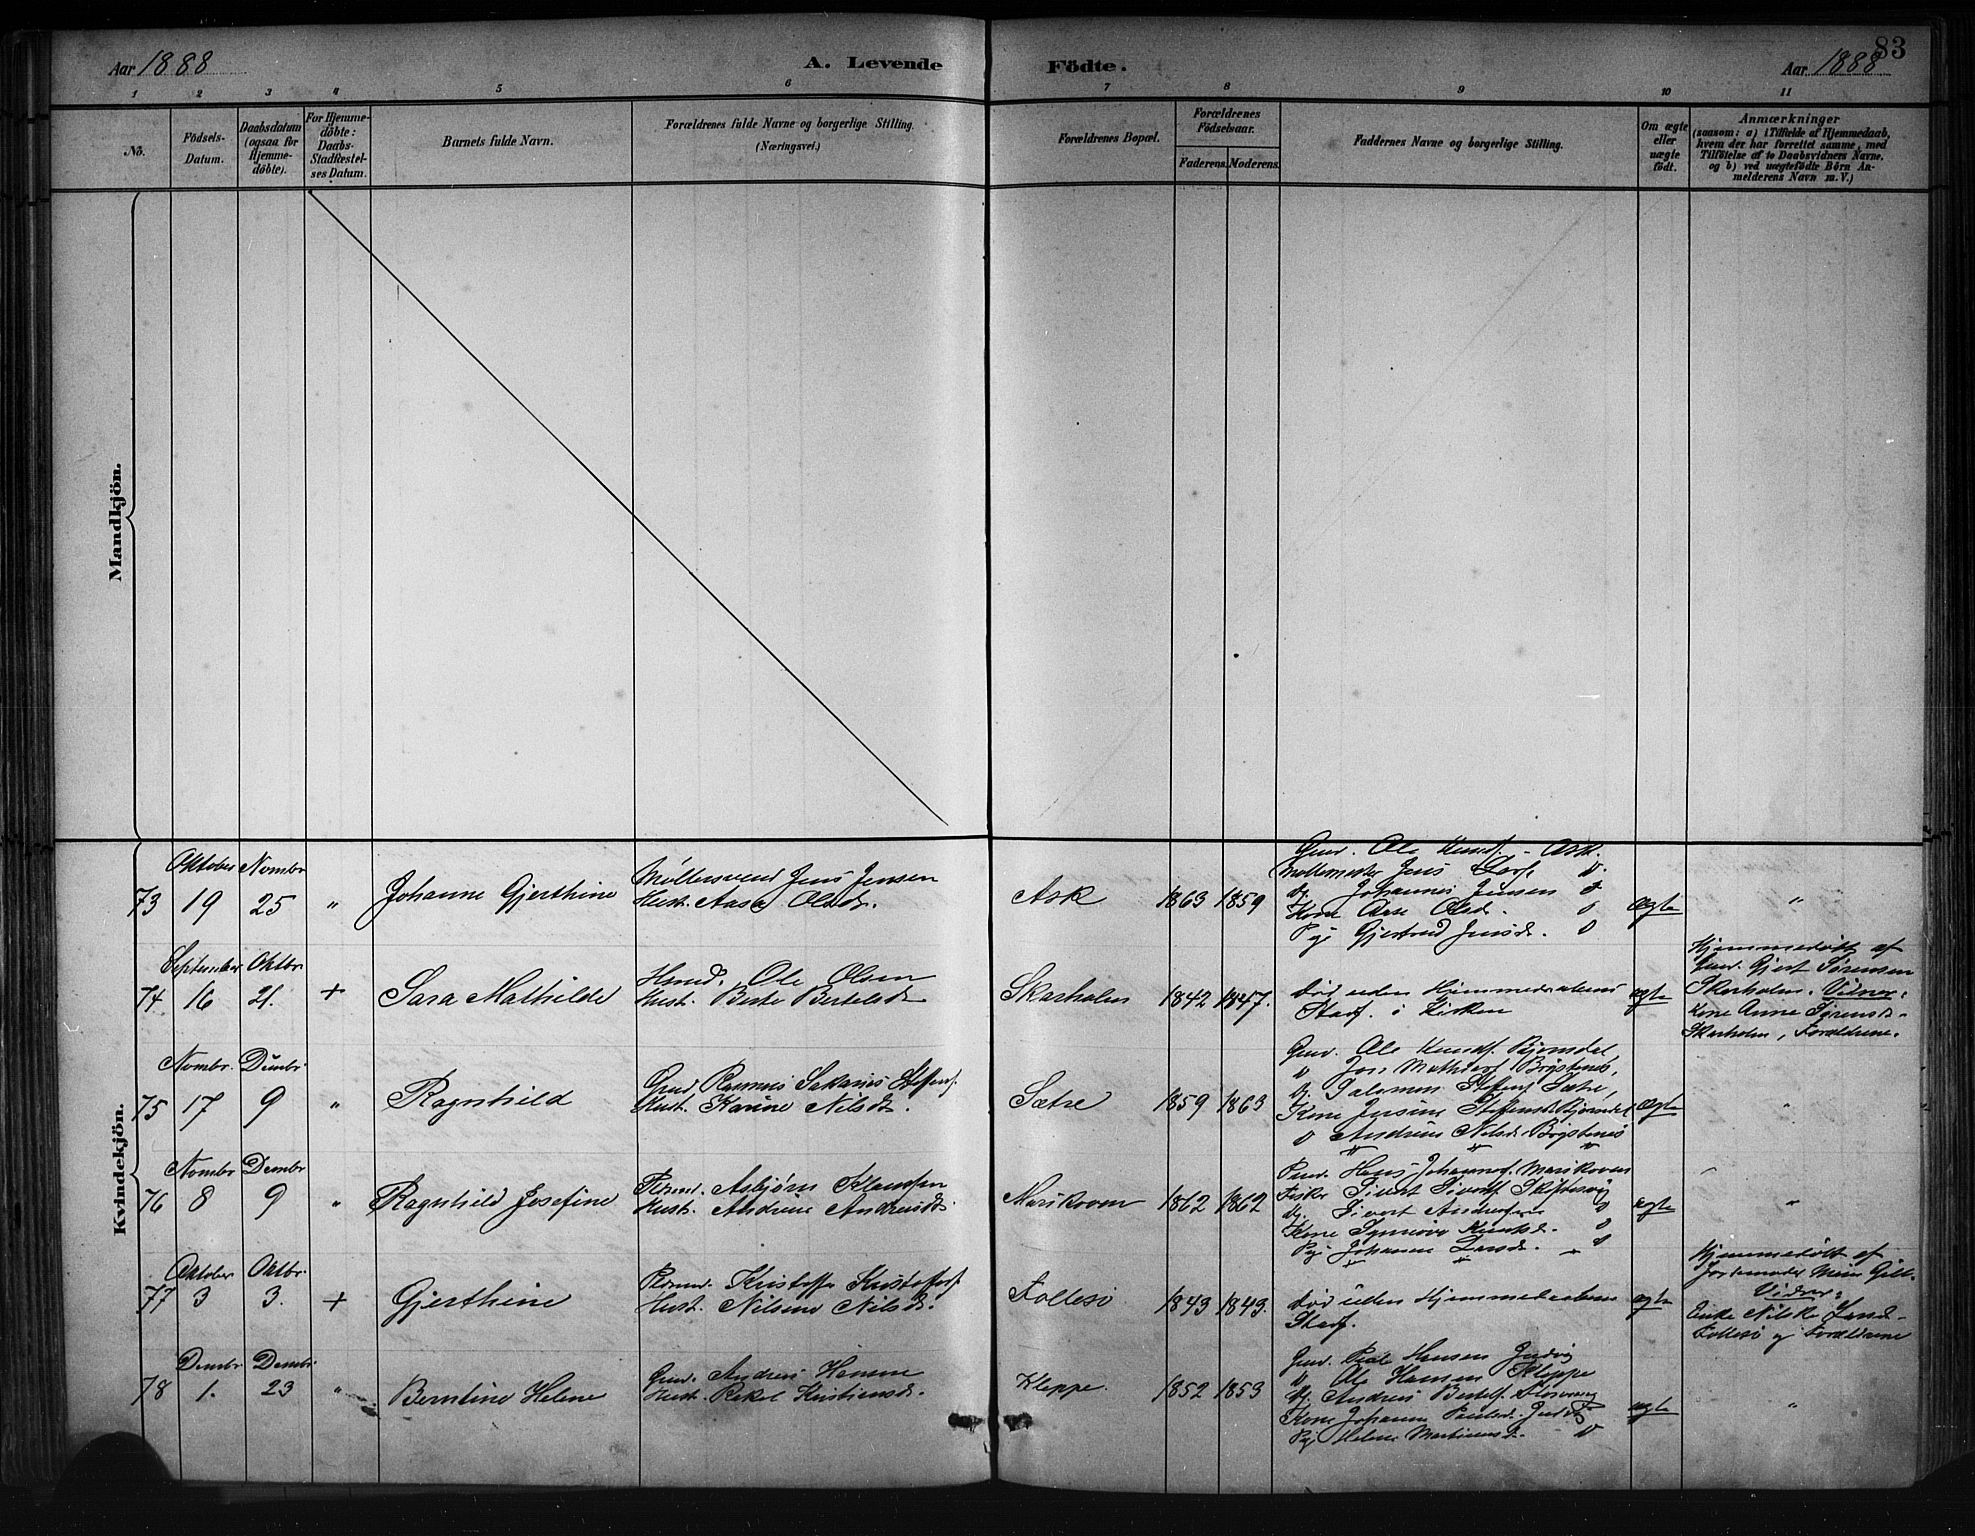 83
Aar 1888
A. Levende
Födte.
Aar 1888
1 2 3 4 5 6 7 8 9 10 11
No.
Födsels-
Datum.
Daabsdatum
(ogsaa for
Hjemme-
döbte).
For Hjemme-
döbte:
Daabs-
Stadfæstel-
ses Datum.
Barnets fulde Navn.
Forældrenes fulde Navne og borgerlige Stilling.
(Næringsvei.)
Forældrenes Bopæl.
Forældrenes
Födselsaar.
Faderens. Moderens.
Faddernes Navne og borgerlige Stilling.
Om ægte
eller
uægte
födt.
Anmærkninger
(saasom: a) i Tilfælde af Hjemmedaab,
hvem der har forrettet samme, med
Tilföielse af to Daabsvidners Navne,
og b) ved uægtefödte Börn An-
melderens Navn m. V.)
Mandkjön.
Kvindekjön.
73
Oktober
19
Novmbr
25
"
Johanne Gjerthine
Møllersvend Jens Jensen
Hust. Aasa Olsdr.
Ask
1863 1859
Gmd. Ole Knuds. - Ask.
Møllemester Jens
Johannes Jensen
Kone Aase Olsd.
Pige Gjertrud Jensd.
ægte
"
74
September
16
Oktbr
21.
+
Sara Mathilde
Hmd. Ole Olsen
Hust. Berte Bertelsdr
Skarholm
1842 1847.
Død uden Hjemmedaabens
Stadf. i Kirken
ægte
Hjemmedøbt af
Gmd. Gjert Sørensen
Skarholm. Vidner:
Kone Anne Sørensd.
Skarholm, Forældrene.
75
Novmbr.
17
Dcmbr.
9
"
Ragnhild
Gmd Rasmus Sakarias Steffens.
Hust. Karine Nilsdr.
Sætre
1859 1863
Gmd. Ole Knuds. Bjorndal
Salomon Steffens. Sætre,
Kone Jensine Steffensd. Bjorndal
Andrine Nilsd.
ægte
"
76
Novmbr
8
Dcmbr
9
"
Ragnhild Josefine
Asbjørn Klausen
Hust. Andrine Andreasdr.
Marikoven
1862 1862
Hans Johannes. Marikoven
Fisker Sivert Siverts.
Sivert Andersen
Kone Synnøve Knutsd.
Pige Johanne Larsd.
ægte
"
77
Oktober
3
Oktbr.
3.
+
Gjerthine
Kristoffer Kristoffers.
Hust. Nilsine Nilsdr.
Follesø
1843 1843.
Død uden Hjemmedaabens
Stadf.
ægte
Hjemmedøbt af
Jordemoder
Vidner:
Enke Nilske Larsd.
Follesø og Forældrene
78
Dcmbr
1.
Dcmbr.
23
"
Berntine Helene
Gmd. Andreas Hansen
Hust. Rakel Kristiansdr.
Kleppe
1852 1853
Gmd. Peder Hansen
Ole Hansen Kleppe
Andreas Bertels.
Kone Johanne
Pige Helene Martinusd.
ægte
"